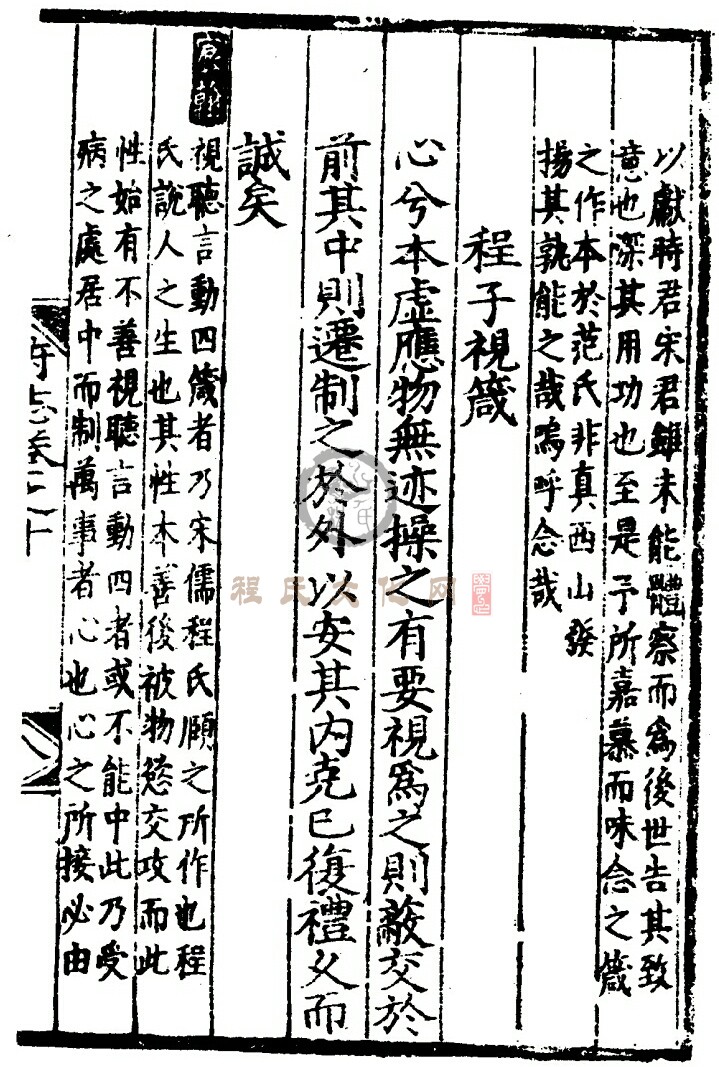 以獻時君宋君雖未能體察而爲後世告其致
意也深其用功也至是予所嘉慕而味念之箴
之作本於范氏非真西山發
揚其孰能之哉嗚呼念哉
程子視箴
心兮本虛應物無迹操之有要視爲之則蔽交於
前其中則遷制之於外以安其内克已復禮乆而
誠矣
宸翰
視聽言動四箴者乃宋儒程氏頤之所作也程
氏說人之生也其性本善後被物慾交攻而此
性始有不善視聽言動四者或不能中此乃受
病之處居中而制萬事者心也心之所接必由
府志卷之十
八
程氏文化网